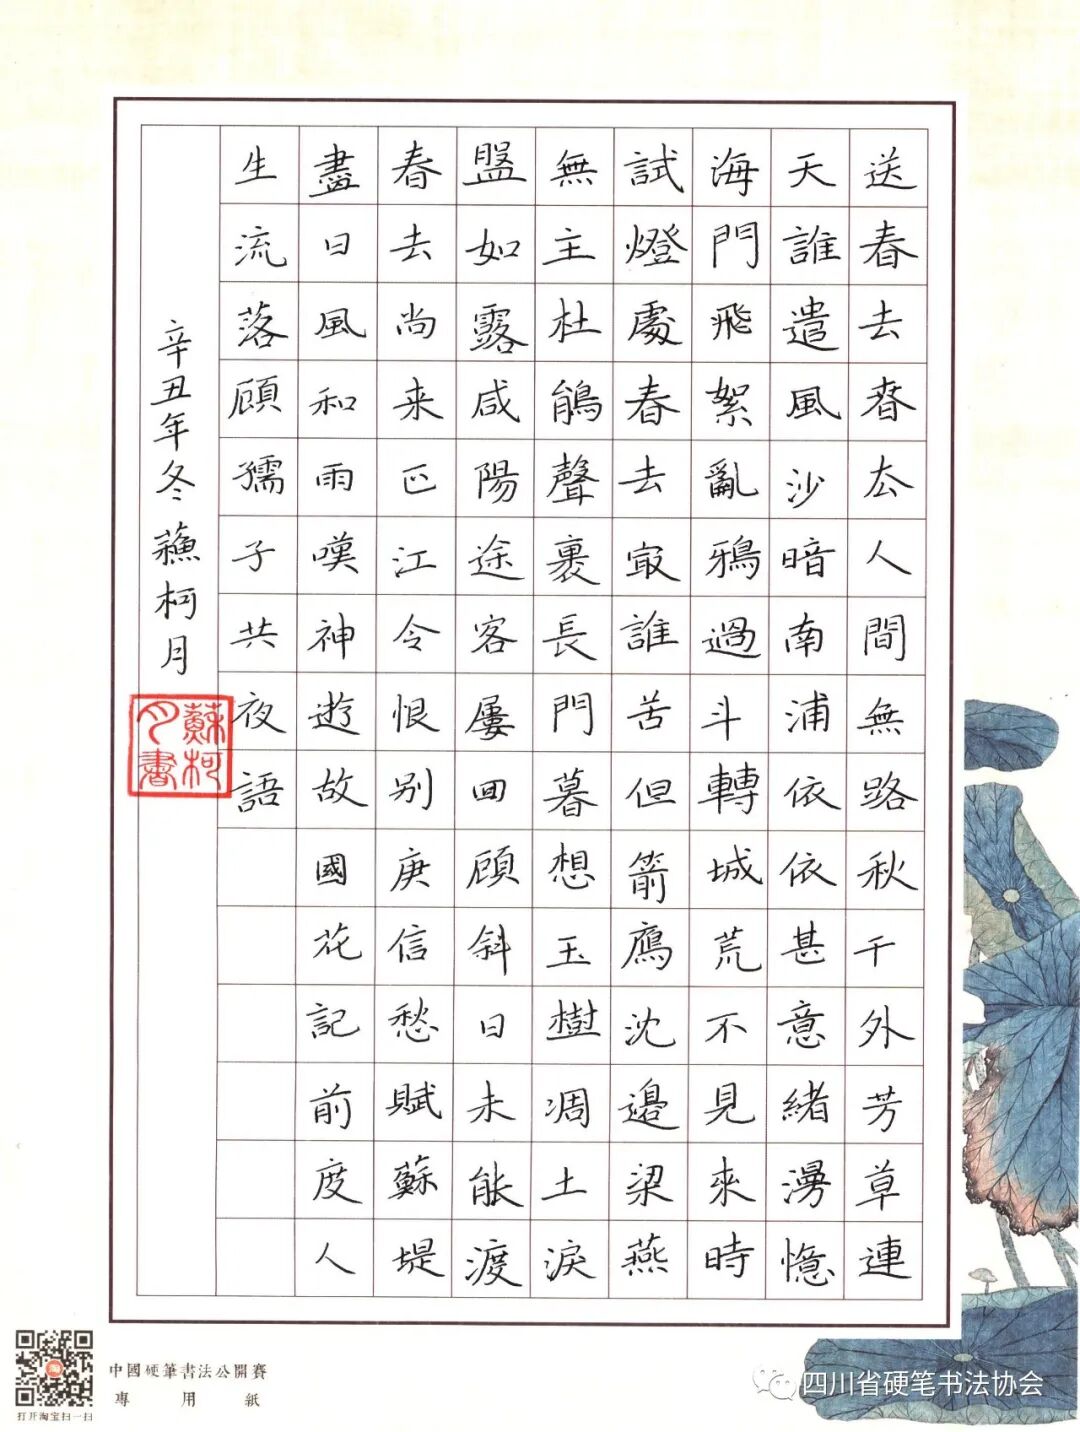 送春去春厺人間無路秋千外芳草連
天誰遣風沙暗南浦依依甚意緒漫憶
海門飛絮亂鴉過斗轉城荒不見來時
試燈處春去冣誰苦但箭鴈沈邊梁燕
無主杜鵑聲裏長門暮想玉樹凋土淚
盤如露咸陽途客屢回顧斜日未能渡
春去尚来正江令恨别庾信愁賦蘇堤
盡日風和雨嘆神遊故國花記前度人
生流落顧孺子共夜語
辛丑年冬蘓柯月
蘇柯月書
中國硬筆書法公開賽
專用紙
打开淘宝扫一扫
四川省硬笔书法协会